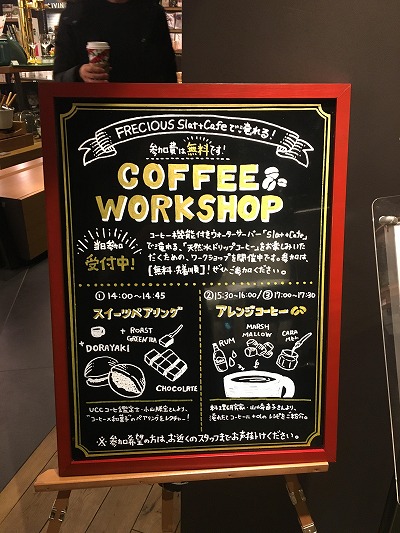 FRECIOUS Slat+Cafeで淹れる!
参加費は無料です!
COFFEE
WORKSHOP
当日参加
受付中!
コーヒー機能付きウォーターサーバー「Slat+Cafe」
で淹れる、「天然水ドリップコーヒー」をお楽しみいた
だくための、ワークショップを開催中です。参加は、
[無料・先着順]!ぜひご参加ください。
①14:00〜14:45
スイーツペアリング
+ ROAST
GREEN TEA
+
DORAYAKI
CHOCOLATE
UCCコーヒー鑑定士・
"コーヒー×和菓子"のペアリングをレクチャー!
②15:30~16:00/③17:00~17:30
アレンジコーヒー
MARSH
MALLOW
RUM
CARA
料理研究家・山崎
淹れたてコーヒー+αのレシピをご紹介。
※参加希望の方は、お近くのスタッフまでお声掛けください。